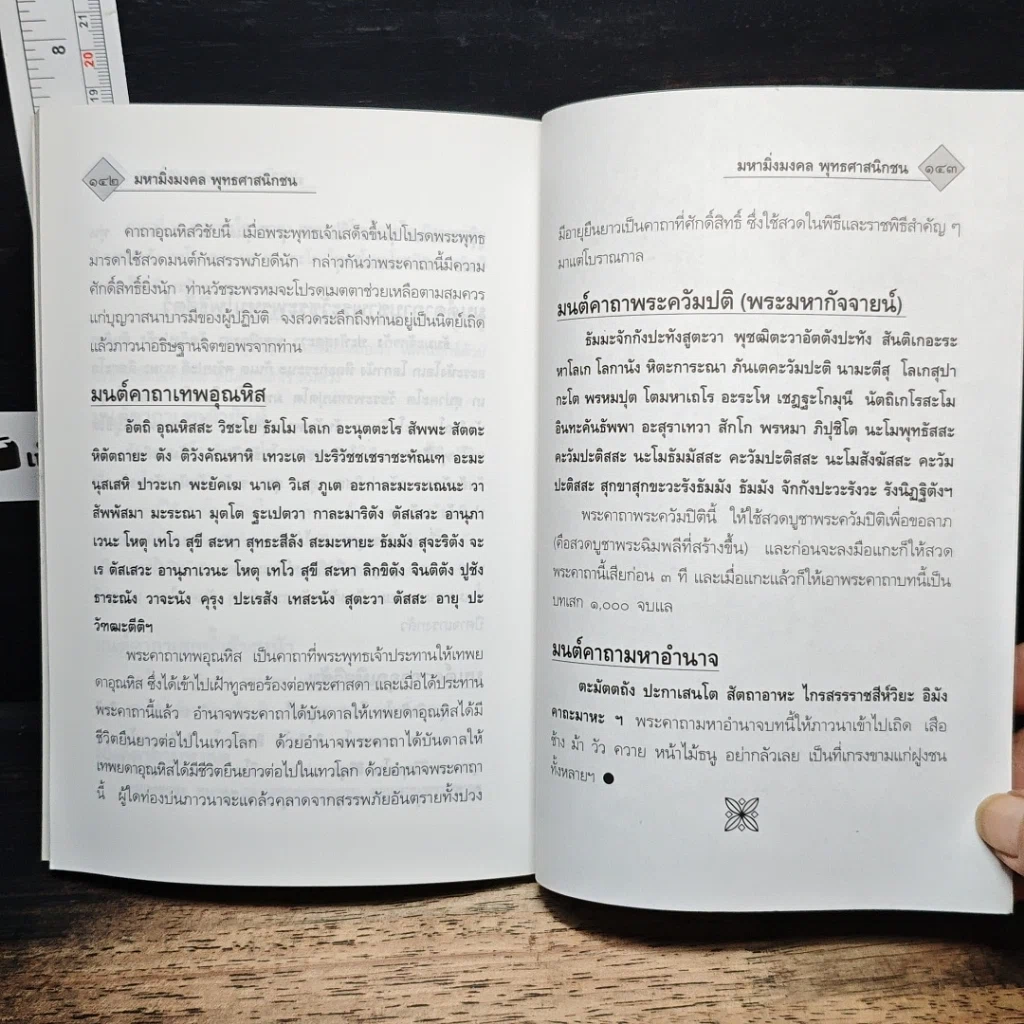 8
21
20
19
๑๔๒ มหามิ่งมงคล พุทธศาสนิกชน
คาถาอุณหิสวิชัยนี้ เมื่อพระพุทธเจ้าเสด็จขึ้นไปโปรดพระพุทธ
มารดาใช้สวดมนต์กันสรรพภัยดีนัก กล่าวกันว่าพระคาถานี้มีความ
ศักดิ์สิทธิ์ยิ่งนัก ท่านวัชระพรหมจะโปรดเมตตาช่วยเหลือตามสมควร
แก่บุญวาสนาบารมีของผู้ปฏิบัติ จงสวดระลึกถึงท่านอยู่เป็นนิตย์เถิด
แล้วภาวนาอธิษฐานจิตขอพรจากท่าน
มนต์คาถาเทพอุณหิส
อัตถิ อุณหิสสะ วิชะโย ธัมโม โลเก อะนุตตะโร สัพพะ สัตตะ
หิตัตถายะ ตัง ติวังคัณหาหิ เทวะเต ปะริวัชชเชราชะทัณเฑ อะมะ
นุสเสหิ ปาวะเก พะยัคเฆ นาเค วิเส ภูเต อะกาละมะระเณนะ วา
สัพพัสมา มะระณา มุตโต ฐะเปตวา กาละมาริตัง ตัสเสวะ อานุภา
เวนะ โหตุ เทโว สุขี สะหา สุทธะสีลัง สะมะหายะ ธัมมัง สุจะริตัง จะ
เร ตัสเสวะ อานุภาเวนะ โหตุ เทโว สุขี สะหา ลิกขิตัง จินติตัง ปูชัง
ธาระณัง วาจะนัง คุรุง ปะเรสัง เทสะนัง สุตะวา ตัสสะ อายุ ปะ
วัฑฒะตีติฯ
พระคาถาเทพอุณหิส เป็นคาถาที่พระพุทธเจ้าประทานให้เทพย
ดาอุณหิส ซึ่งได้เข้าไปเฝ้าทูลขอร้องต่อพระศาสดา และเมื่อได้ประทาน
พระคาถานี้แล้ว อำนาจพระคาถาได้บันดาลให้เทพยดาอุณหิสได้มี
ชีวิตยืนยาวต่อไปในเทวโลก ด้วยอำนาจพระคาถาได้บันดาลให้
เทพยดาอุณหิสได้มีชีวิตยืนยาวต่อไปในเทวโลก ด้วยอำนาจพระคาถา
นี้ ผู้ใดท่องบ่นภาวนาจะแคล้วคลาดจากสรรพภัยอันตรายทั้งปวง
มหามิ่งมงคล พุทธศาสนิกชน ๑๔๓
มีอายุยืนยาวเป็นคาถาที่ศักดิ์สิทธิ์ ซึ่งใช้สวดในพิธีและราชพิธีสำคัญ ๆ
มาแต่โบราณกาล
มนต์คาถาพระควัมปติ (พระมหากัจจายน์)
ธัมมะจักกังปะทังสูตะวา พุชฌิตะวาอัตตังปะทัง สันติเกอะระ
หาโลเก โลกานัง หิตะการะณา ภันเตคะวัมปะติ นามะตีสุ โลเกสุปา
กะโต พรหมปุต โตมหาเถโร อะระโห เชฎฐะโกมุนี นัตถิเกโรสะโม
อินทะคันธัพพา อะสุราเทวา สักโก พรหมา ภิปุชิโต นะโมพุทธัสสะ
คะวัมปะติสสะ นะโมธัมมัสสะ คะวัมปะติสสะ นะโมสังฆัสสะ คะวัม
ปะติสสะ สุกขาสุกขะวะรังธัมมัง ธัมมัง จักกังปะวะรังวะ รังนิฏฐิตังฯ
พระคาถาพระควัมปิตินี้ ให้ใช้สวดบูชาพระควัมปิติเพื่อขอลาภ
(คือสวดบูชาพระฉิมพลีที่สร้างขึ้น) และก่อนจะลงมือแกะก็ให้สวด
พระคาถานี้เสียก่อน ๓ ที และเมื่อแกะแล้วก็ให้เอาพระคาถาบทนี้เป็น
บทเสก ๑,๐๐๐ จบแล
มนต์คาถามหาอำนาจ
ตะมัตตถัง ปะกาเสนโต สัตถาอาหะ ไกรสรรราชสีห์วิยะ อิมัง
คาถะมาหะ ฯ พระคาถามหาอำนาจบทนี้ให้ภาวนาเข้าไปเถิด เสือ
ช้าง ม้า วัว ควาย หน้าไม้ธนู อย่ากลัวเลย เป็นที่เกรงขามแก่ฝูงชน
ทั้งหลายฯ ●